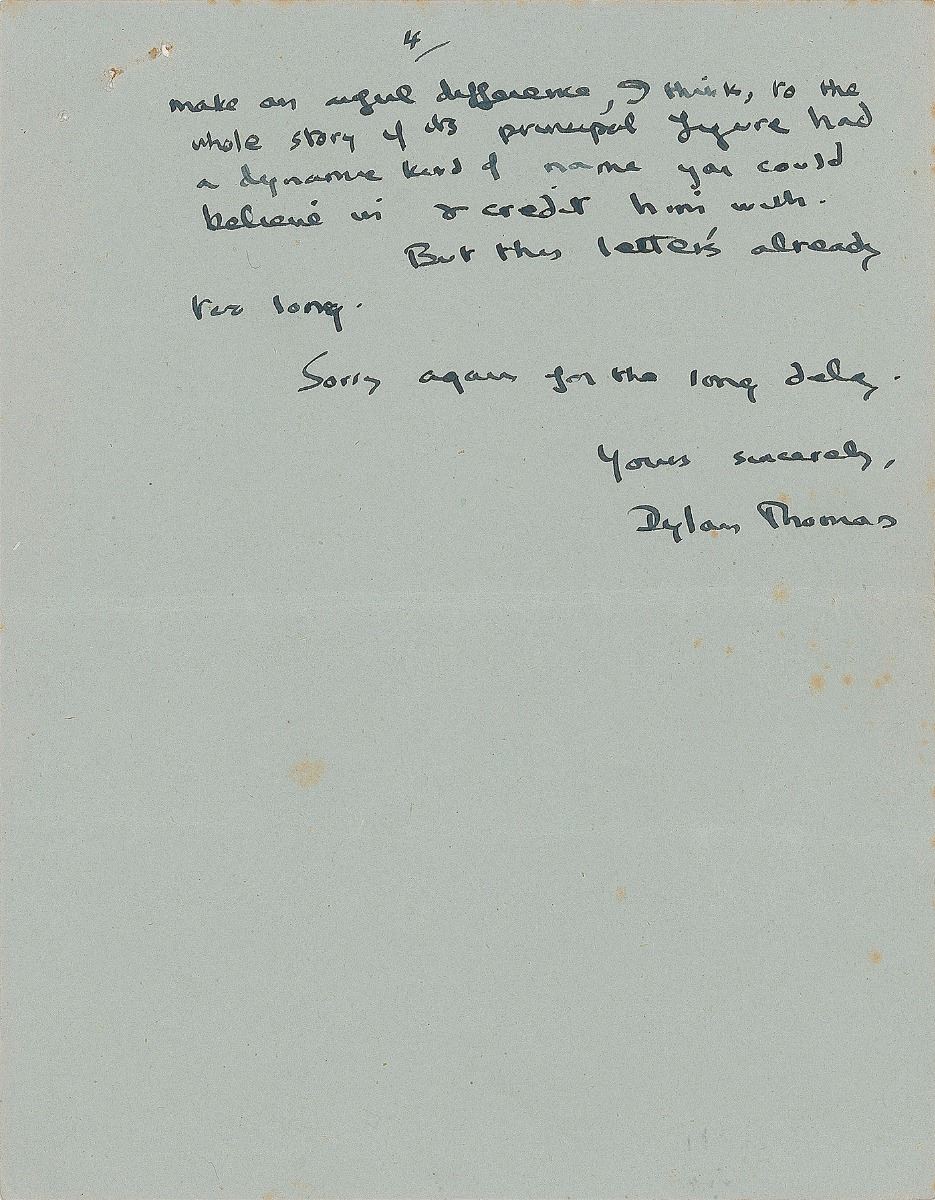 4/
make an awful difference, I think, to the
whole story if its principal figure had
a dynamic kind of name you could
believe in & credit him with.
But this letter's already
too long.
Sorry again for the long delay.
Yours sincerely,
Dylan Thomas